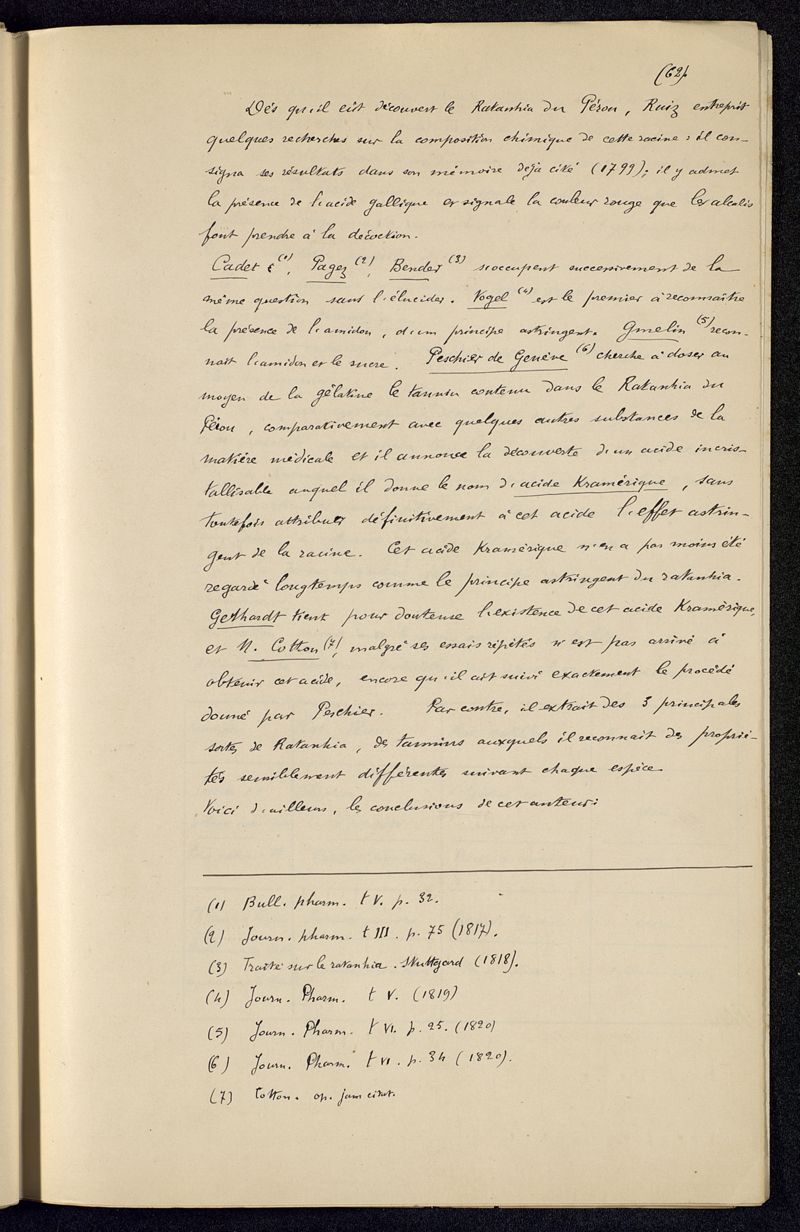 (62)
Dès qu'il eût découvert le Ratanhia du Pérou, Ruiz entreprit
quelques recherches sur la composition chimique de cette racine : il con-
signa ses résultats dans son mémoire déjà cité (1799); il y admet
la présence de l'acide gallique et signale la couleur rouge que les alcalis
font prendre à la décoction.
Cadet (1), Pagez (2), Bender (3) s'occupent successivement de la
même question sans l'élucider. Vogel (4) est le premier à reconnaître
la présence de l'amidon, d'un principe astringent. Gmelin (5) recon-
nait l'amidon et le sucre. Peschier de Genève (6) cherche à doser au
moyen de la gélatine le tannin contenu dans le Ratanhia du
Pérou, comparativement avec quelques autres substances de la
matière médicale et il annonce la découverte d'un acide incris-
tallisable auquel il donne le nom d'acide Kramérique, sans
toutefois attribuer définitivement à cet acide l'effet astrin-
gent de la racine. Cet acide Kramérique n'en a pas moins été
regardé longtemps comme le principe astringent du ratanhia.
Gerhardt tient pour douteuse l'existence de cet acide Kramérique,
et M. Cotton (7), malgré ses essais répétés n'est pas arrivé à
obtenir cet acide, encore qu'il ait suivi exactement le procédé
donné par Peschier. Par contre, il extrait des 3 principales
sortes de Ratanhia, des tannins auxquels il reconnait des proprié-
tés sensiblement différentes suivant chaque espèce
Voici d'ailleurs, les conclusions de cet auteur:
(1) Bull. pharm. t V. p. 32.
(2) Journ. pharm. t III. p. 75 (1817).
(3) Traité sur le ratanhia. Stuttgard (1818).
(4) Journ. Pharm. t V. (1819)
(5) Journ. Pharm. t VI. p. 25. (1820)
(6) Journ. Pharm. t VI. p. 34 (1820).
(7) Cotton. op. jam citat.